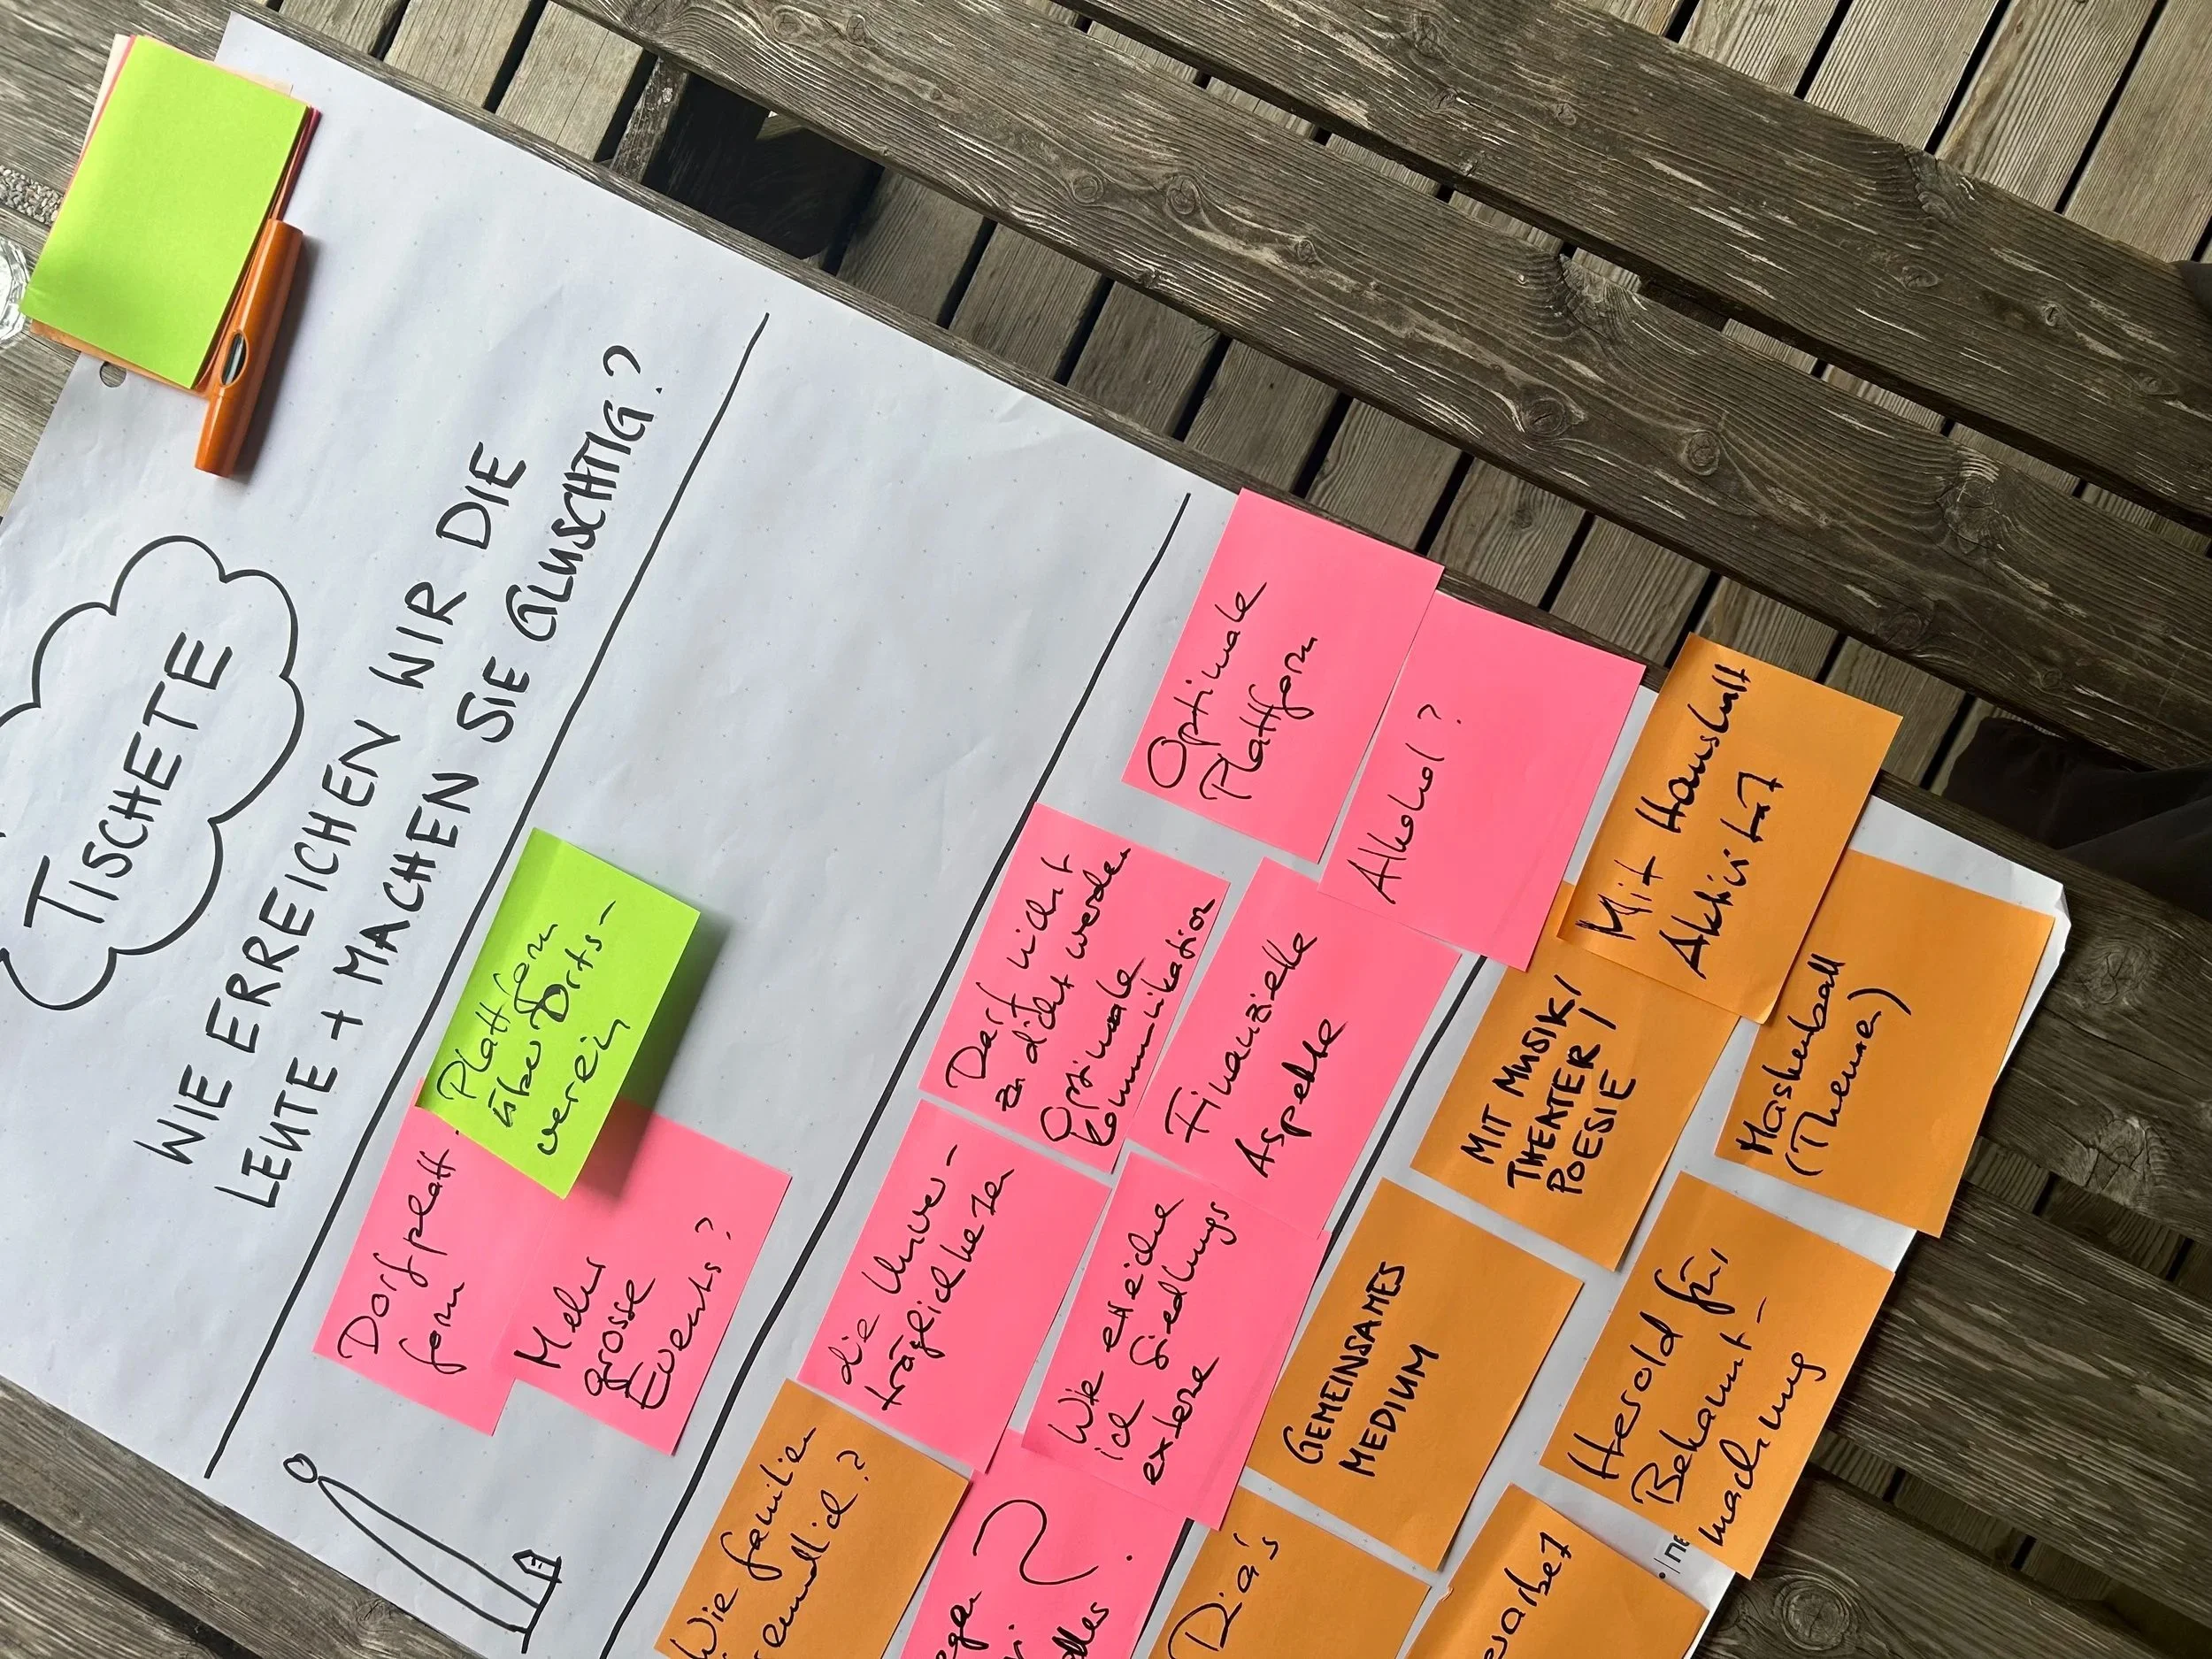 TISCHETE
WIE ERREICHEN WIR DIE
LEUTE + MACHEN SIE GLUSCHTIG?
Plattform
über Dorfs-
verein
Dorfplatt
form
Mehr
grosse
Events?
Optimale
Plattform
Alkohol?
Darf nicht
zu dicht werden
Optimale
Kommunikation
Finanzielle
Aspekte
die Unver-
träglichkeiten
Wie erreiche
ich Siedlungs
externe
Wie familien
freundlich?
Mit Haushalt
Aktivität
MIT MUSIK/
THEATER/
POESIE
Maskenball
(Themen)
GEMEINSAMES
MEDIUM
Herold für
Bekannt-
machung
Dia's